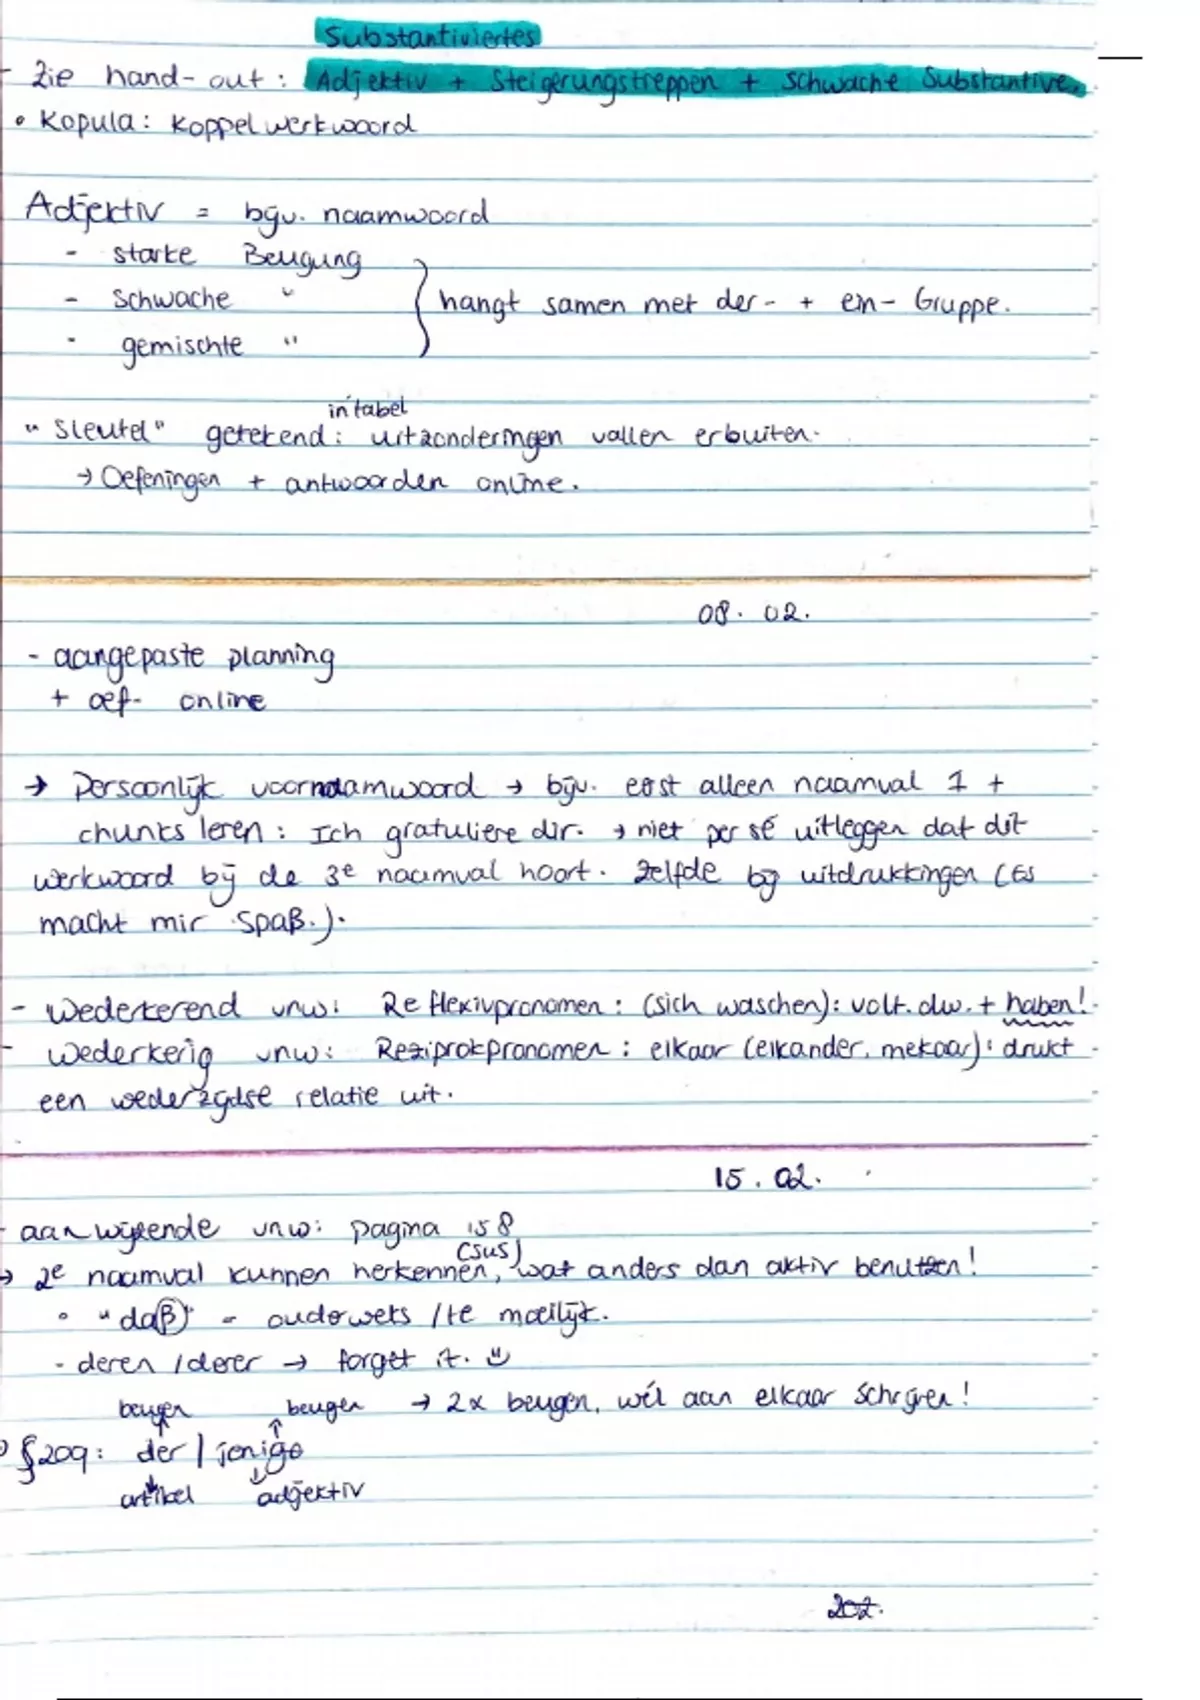 Substantiviertes
- Zie hand-out: Adjektiv + Steigerungstreppen + schwache Substantive.
• Kopula: Koppelwerkwoord
Adjektiv = bijv. naamwoord
- starke Beugung
- schwache "
- gemischte "
} hangt samen met der- + ein- Gruppe.
in tabel
"Sleutel" getekend: uitzonderingen vallen erbuiten.
→ Oefeningen + antwoorden online.
08. 02.
- aangepaste planning
+ oef. online
→ Persoonlijk voornaamwoord → bijv. eerst alleen naamval 1 +
chunks leren: Ich gratuliere dir. → niet per sé uitleggen dat dit
werkwoord bij de 3e naamval hoort. Zelfde bij uitdrukkingen (Es
macht mir Spaß.).
- Wederkerend vnw: Reflexivpronomen: (sich waschen): volt. dw. + haben!
- Wederkerig vnw: Reziprokpronomen: elkaar (elkander, mekaar): drukt
een wederzijdse relatie uit.
15. 02.
- aanwijzende vnw: pagina 158
(SUS)
→ 2e naamval kunnen herkennen, wat anders dan aktiv benutzen!
• "daß" = ouderwets / te moeilijk.
- deren / derer → forget it.
beugen beugen → 2x beugen, wél aan elkaar schrijven!
§209: der | jenige
artikel adjektiv
202.